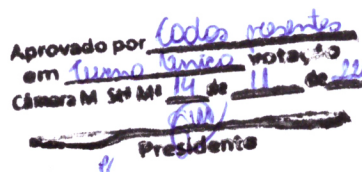 Aprovado por todos presentes
em Turno Único votação
Câmara M. Stª Mª 14 de 11 de 22
Presidente